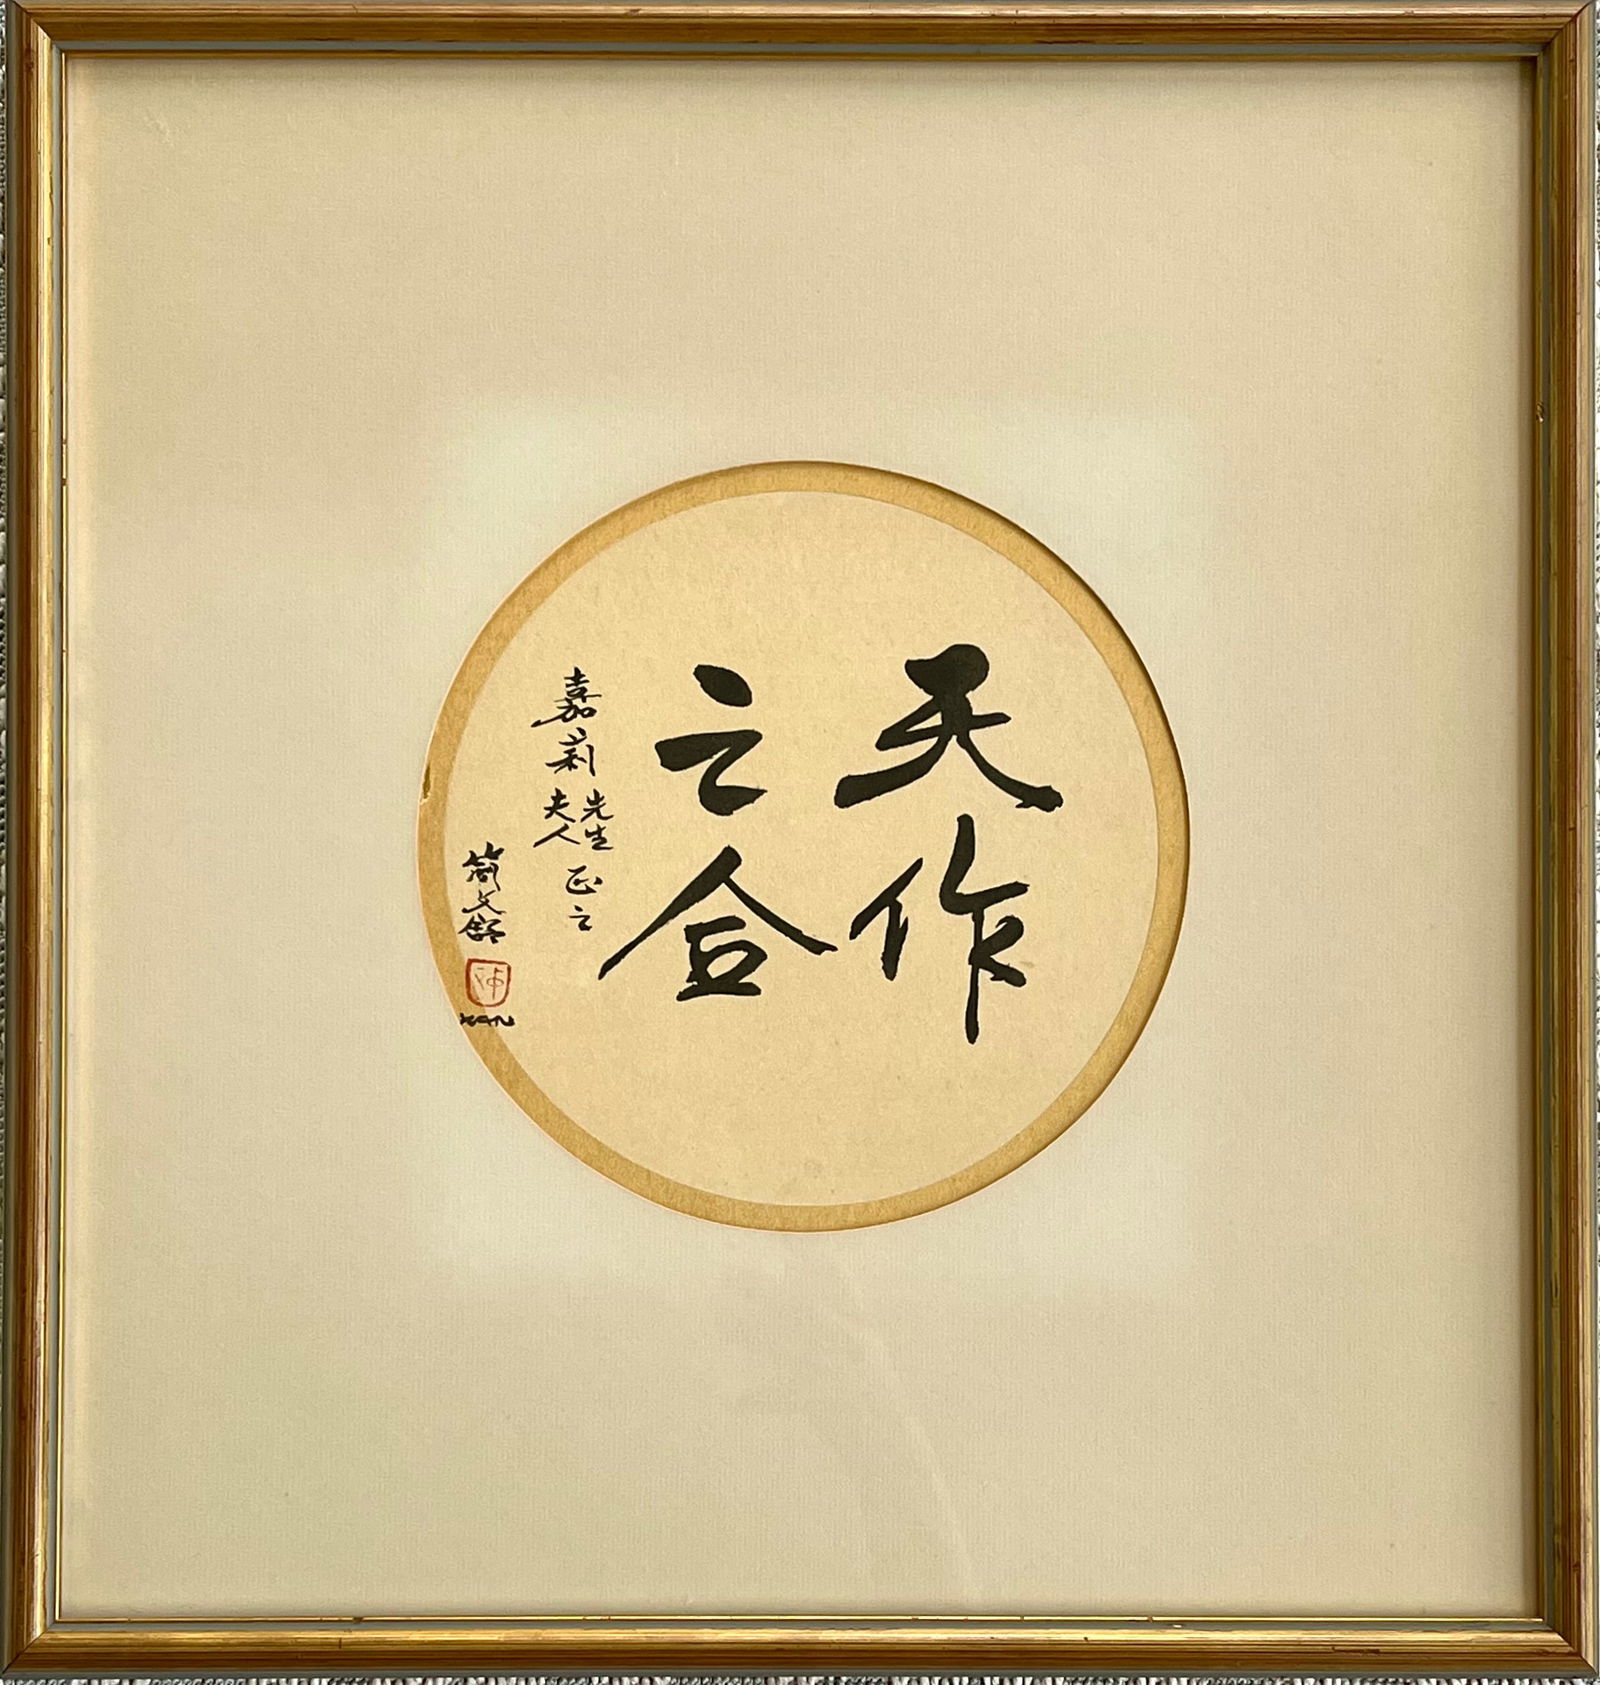 天作
之合
嘉莉先生夫人正之
簡文舒
KAN